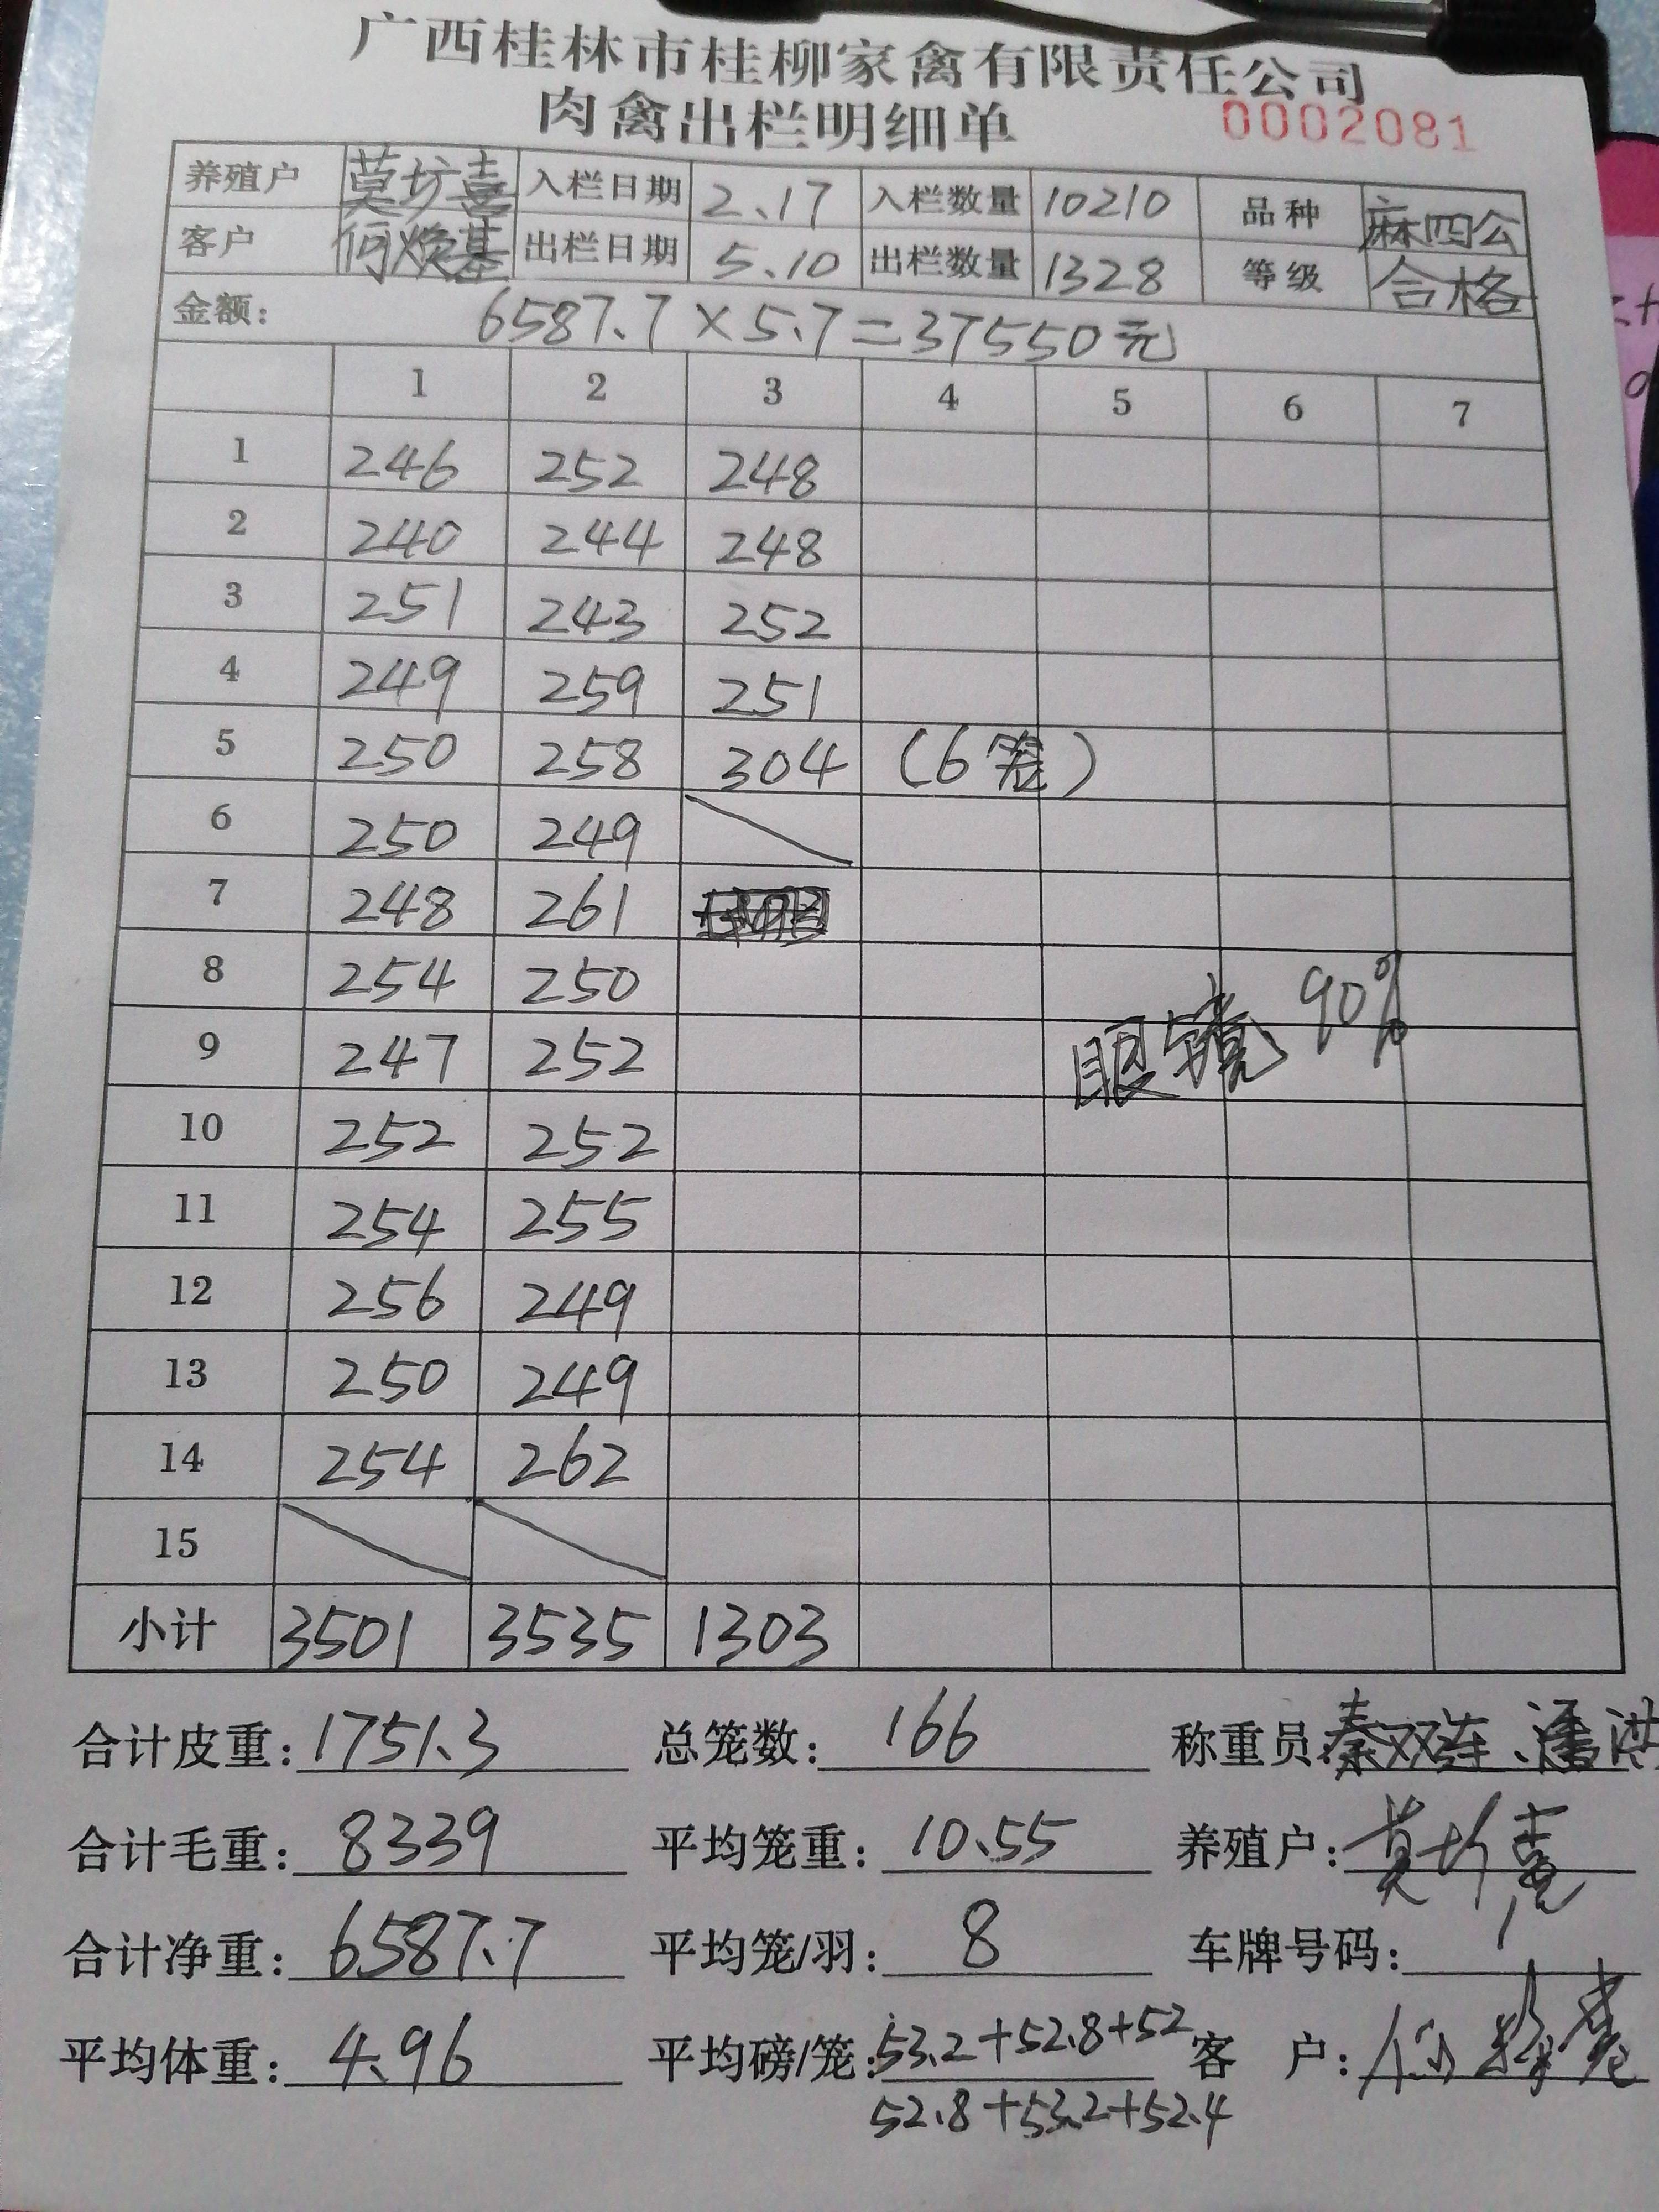 广西桂林市桂柳家禽有限责任公司
肉禽出栏明细单 0002081
养殖户 莫圹喜 入栏日期 2.17 入栏数量 10210 品种 麻四公
客户 何焕基 出栏日期 5.10 出栏数量 1328 等级 合格
金额: 6587.7×5.7=37550元
1 2 3 4 5 6 7
1 246 252 248
2 240 244 248
3 251 243 252
4 249 259 251
5 250 258 304 (6笼)
6 250 249
7 248 261
8 254 250
眼镜 90%
9 247 252
10 252 252
11 254 255
12 256 249
13 250 249
14 254 262
15
小计 3501 3535 1303
合计皮重: 1751.3 总笼数: 166 称重员 秦双连、潘洪
合计毛重: 8339 平均笼重: 10.55 养殖户: 莫圹喜
合计净重: 6587.7 平均笼/羽: 8 车牌号码:
平均体重: 4.96 平均磅/笼: 53.2+52.8+52 客 户:
52.8+53.2+52.4